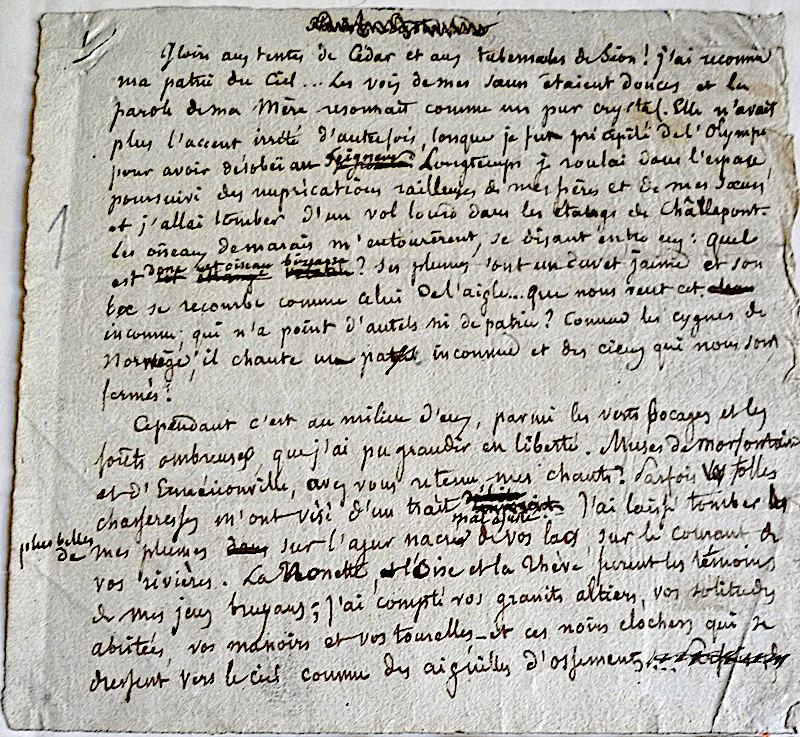 Gloire aux tentes de Cédar et aux tabernacles de Sion ! j'ai reconnu
ma patrie du Ciel... Les voix de mes sœurs étaient douces et la
parole de ma Mère résonnait comme un pur crystal. Elle n'avait
plus l'accent irrité d'autrefois, lorsque je fus précipité de l'Olympe
pour avoir désobéi au Seigneur. Longtemps je roulai dans l'espace
poursuivi des imprécations railleuses de mes frères et de mes sœurs
et j'allai tomber d'un vol lourd dans les étangs de Châllepont.
Les oiseaux de marais m'entourèrent, se disant entre eux : quel
est donc cet oiseau bizarre ? Ses plumes sont un duvet jaune et son
bec se recourbe comme celui de l'aigle... que nous veut cet
inconnu, qui n'a point d'autels ni de patrie ? Comme les cygnes de
Norwège, il chante un pays inconnu et des cieux qui nous sont
fermés !
Cependant c'est au milieu d'eux, parmi les verts bocages et les
forêts ombreuses, que j'ai pu grandir en liberté. Muses de Morfontaine
et d'Ermenonville, avez vous retenu mes chants ? Parfois vos folles
chasseresses m'ont visé d'un trait
mal ajusté. J'ai laissé tomber les
plus belles
de mes plumes sur l'azur nacré de vos lacs, sur le courant de
vos rivières. La Nonette, l'Oise et la Thève furent les témoins
de mes jeux bruyans ; j'ai compté vos granits altiers, vos solitudes
abritées, vos manoirs et vos tourelles – et ces noirs clochers qui se
dressent vers le ciel comme des aiguilles d'ossements...